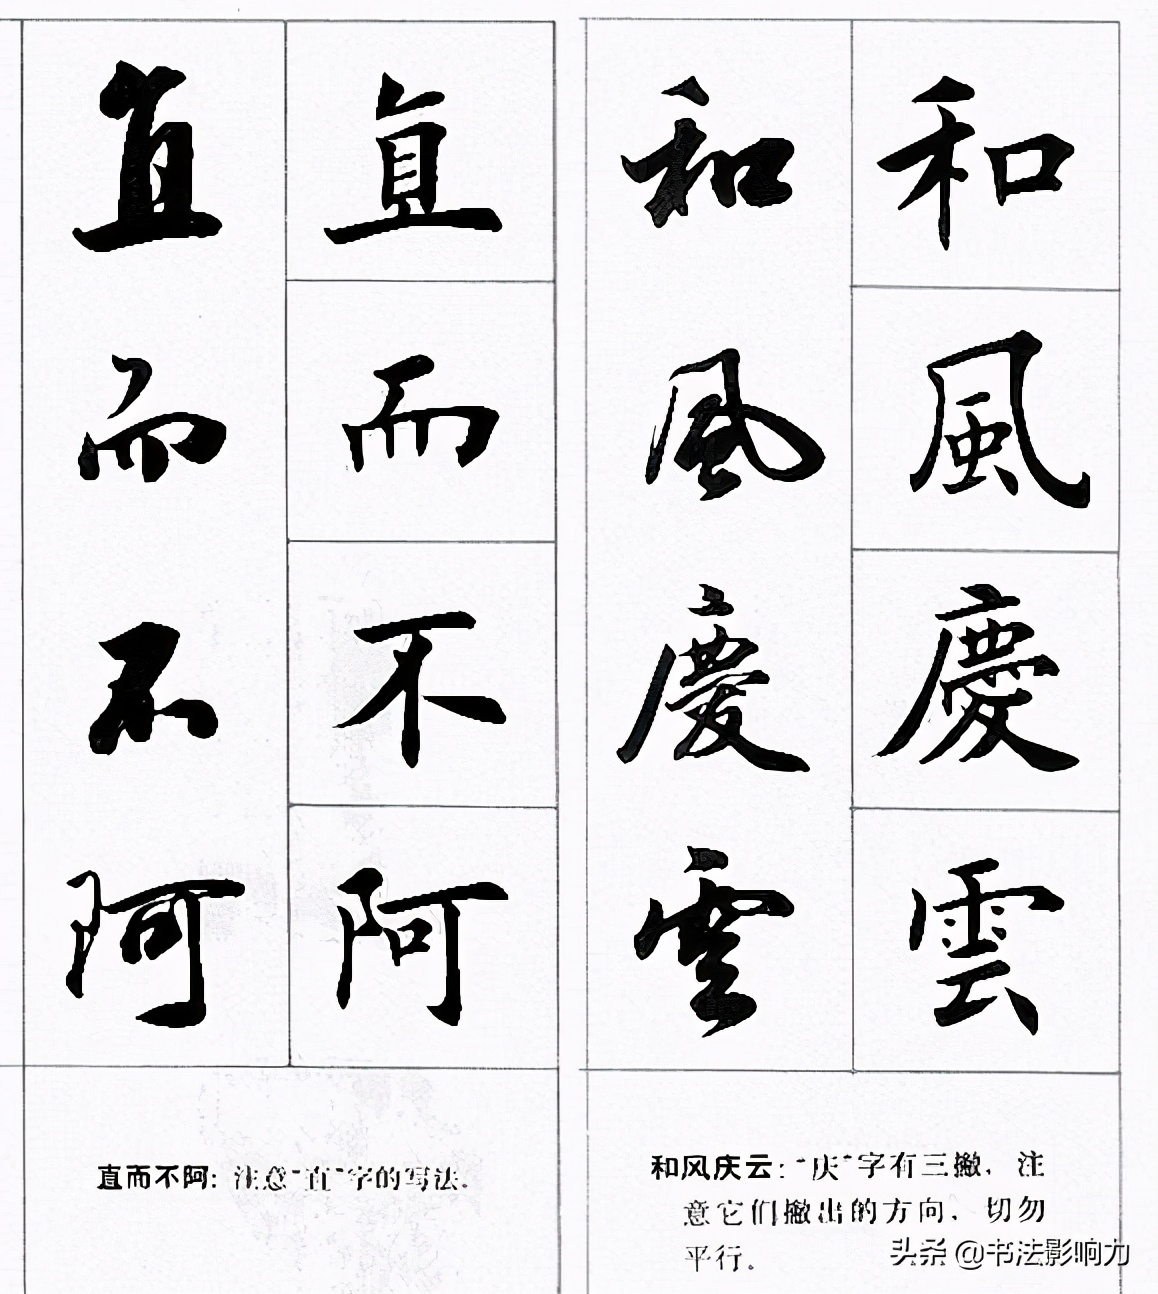 和風慶雲
和風慶雲
和风庆云：“庆”字有三撇，注
意它们撇出的方向，切勿
平行。
直而不阿
直而不阿
直而不阿：注意“直”字的写法。
头条 @书法影响力